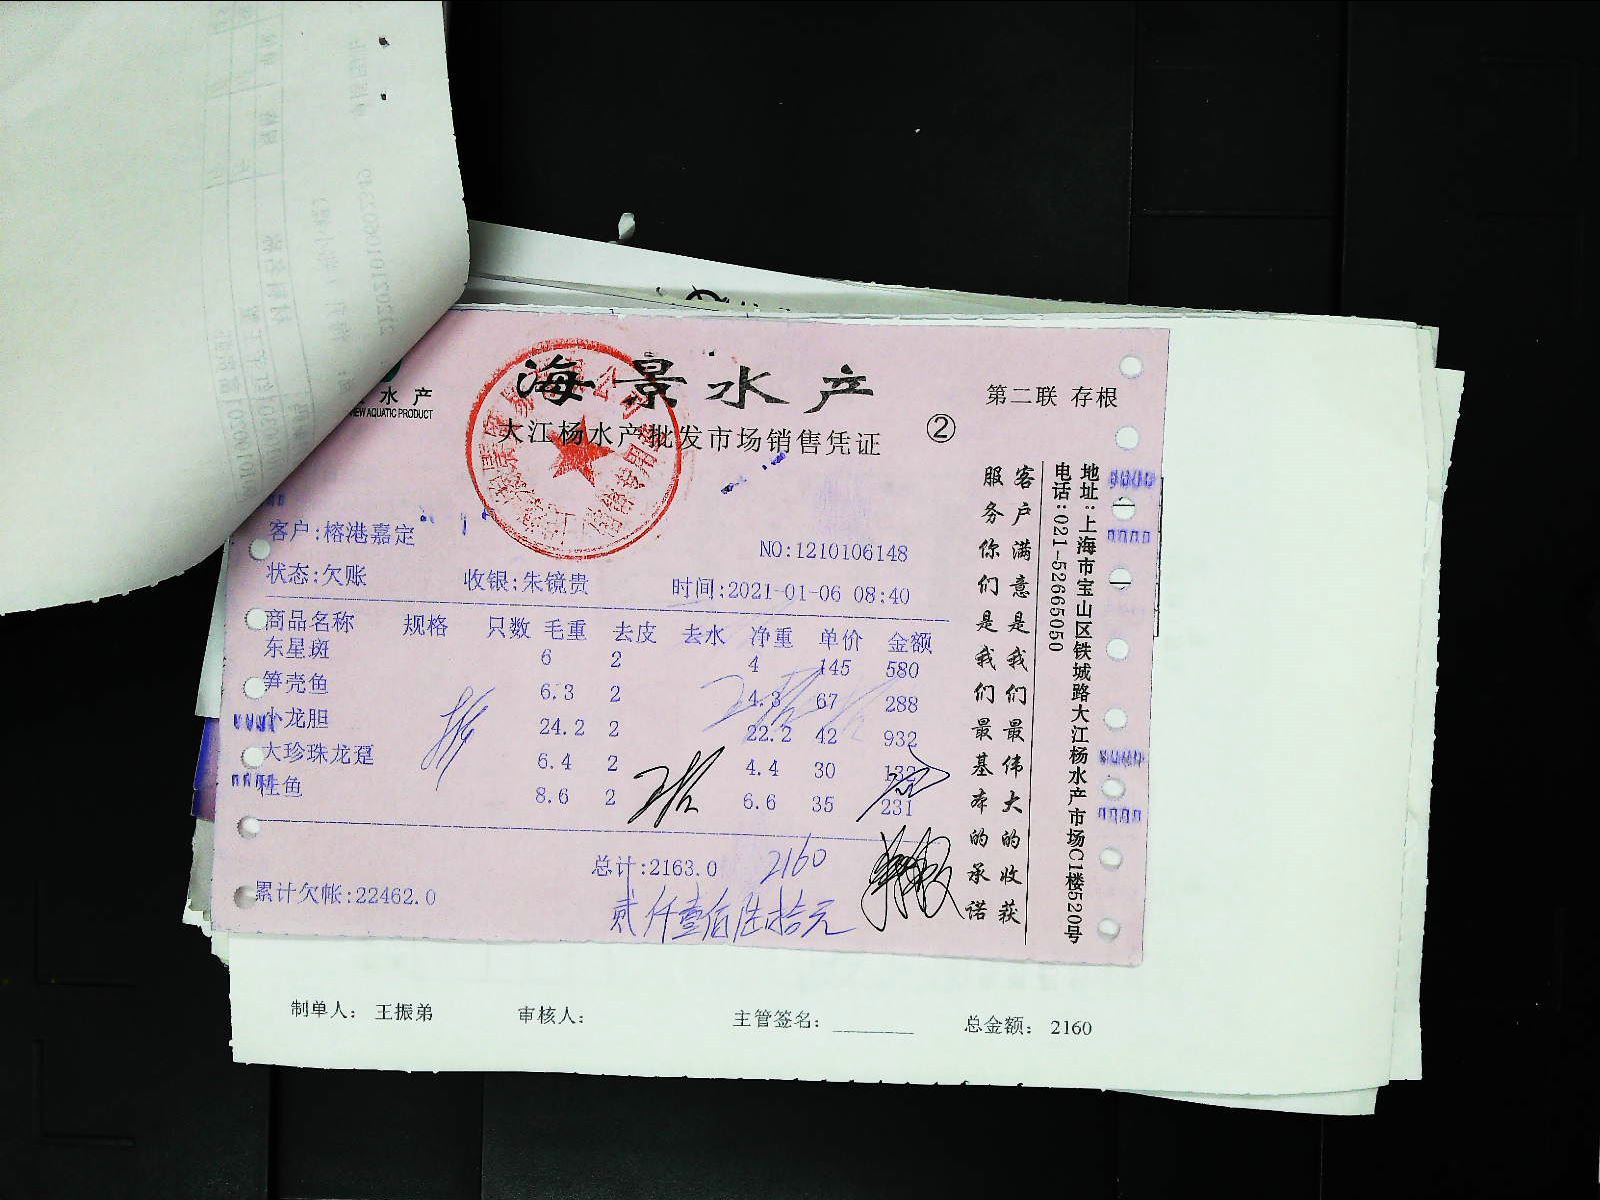 海景水产
水产
VIEW AQUATIC PRODUCT
大江杨水产批发市场销售凭证
②
第二联 存根
客户:榕港嘉定
NO:1210106148
状态:欠账 收银:朱镜贵 时间:2021-01-06 08:40
商品名称 规格 只数 毛重 去皮 去水 净重 单价 金额
东星斑 6 2 4 145 580
笋壳鱼 6.3 2 4.3 67 288
小龙胆 24.2 2 22.2 42 932
大珍珠龙趸 6.4 2 4.4 30 132
桂鱼 8.6 2 6.6 35 231
总计:2163.0 2160
累计欠帐:22462.0
贰仟壹佰陆拾元
客户满意是我们最伟大的收获
服务你们是我们最基本的承诺
地址:上海市宝山区铁城路大江杨水产市场C1楼520号
电话:021-52665050
制单人: 王振弟 审核人: 主管签名: 总金额: 2160